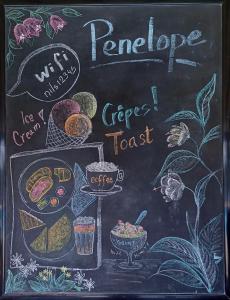 Penelope
wifi
nils12345
Ice
Cream
Crêpes!
Toast
coffee